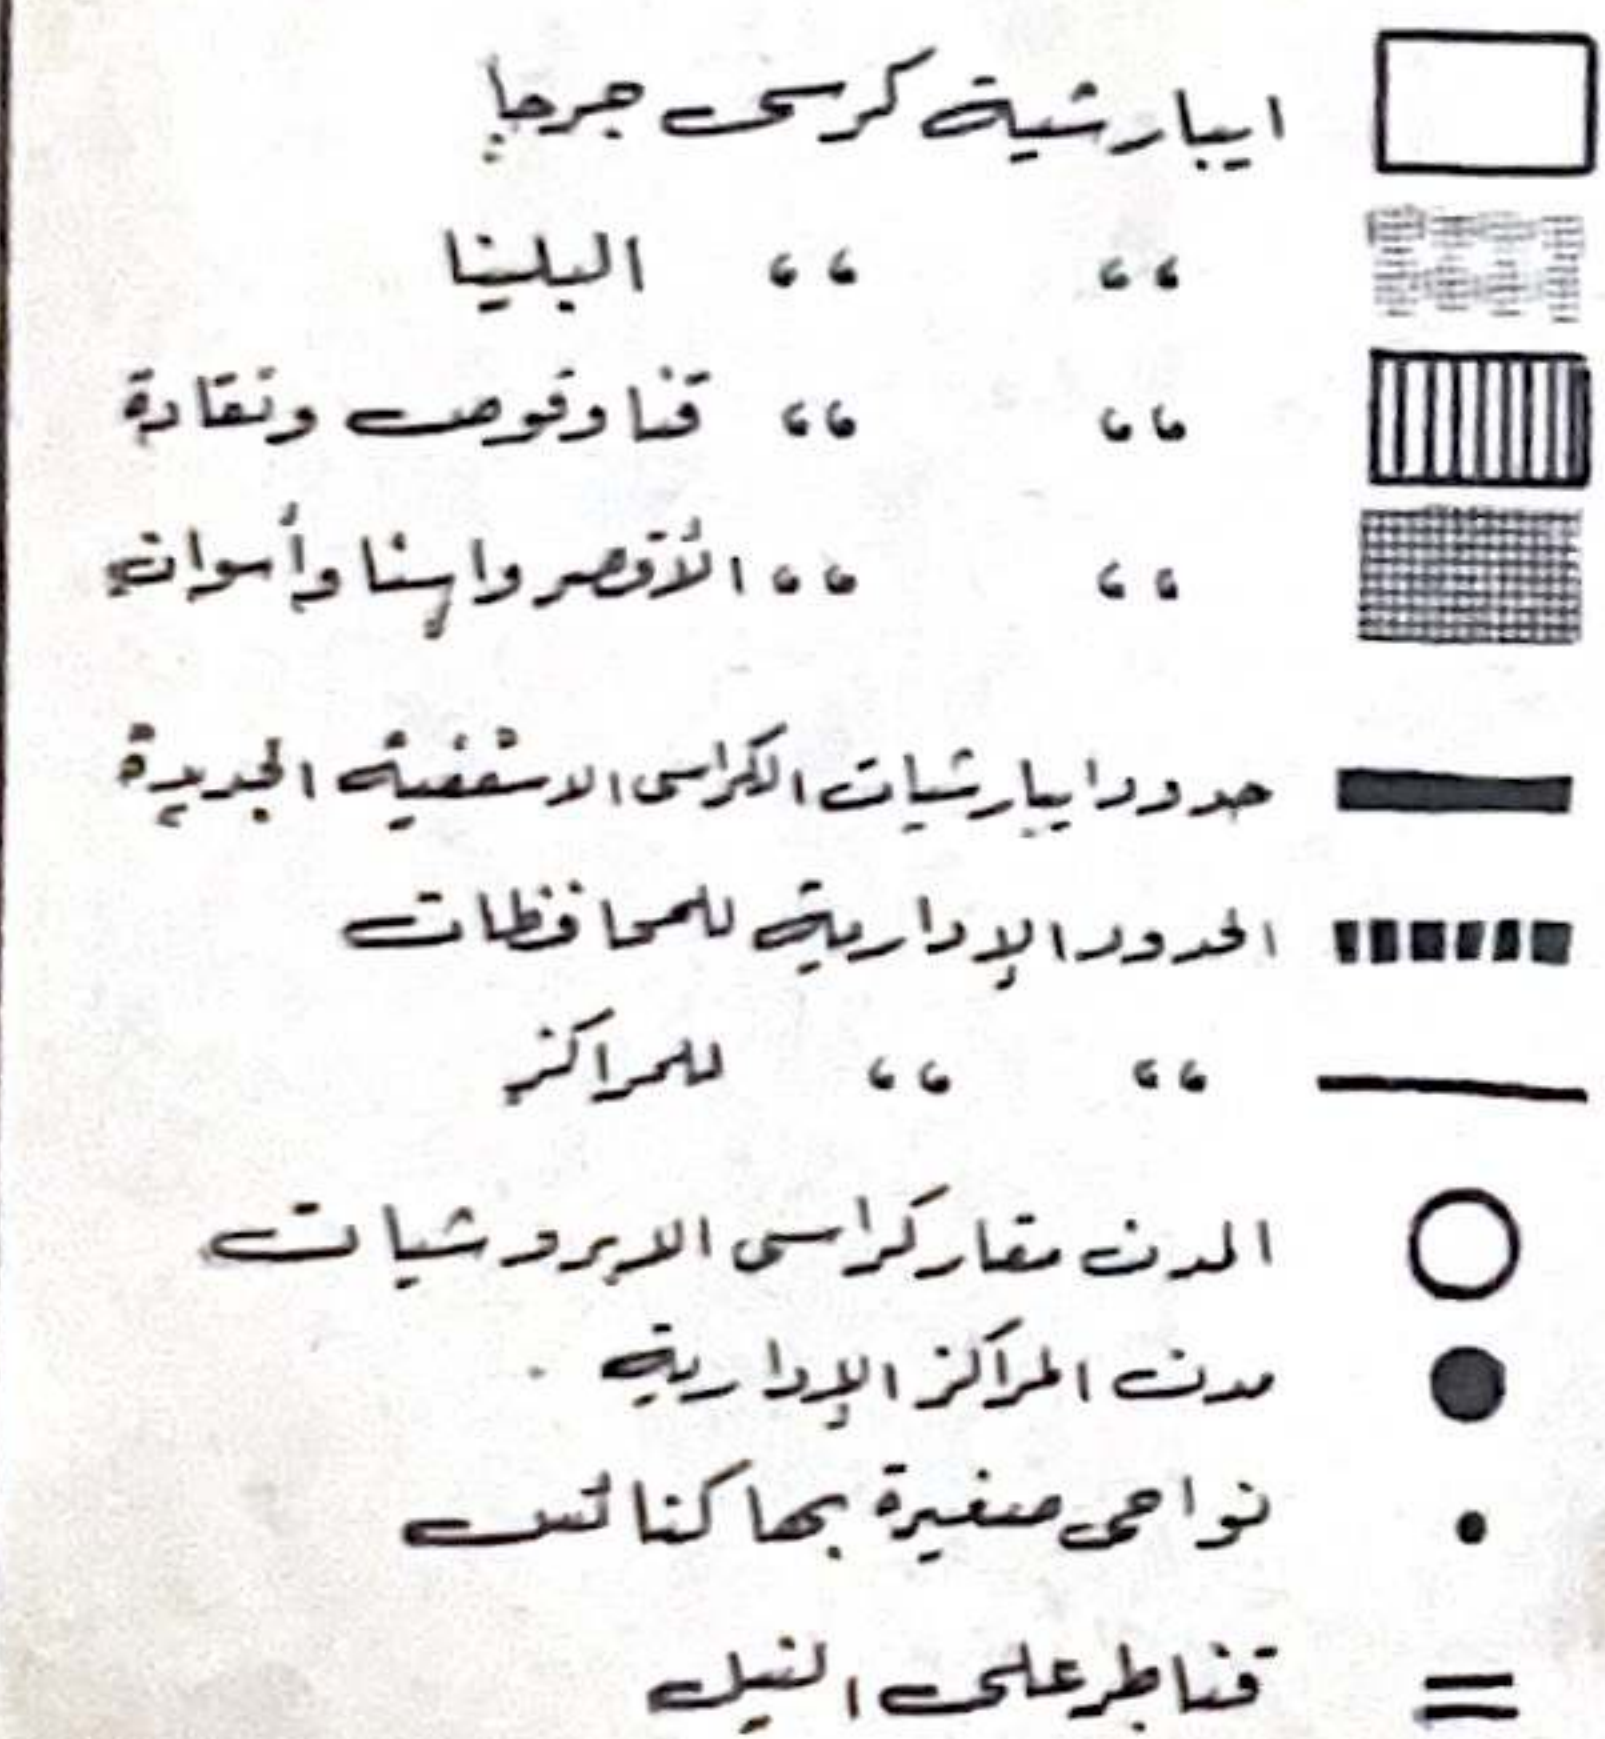 ايبارشية كرسى جرجا
،، ،، البلينا
،، ،، قنا وقوص ونقادة
،، ،، الأقصر وإسنا وأسوان
حدود ايبارشيات الكراسى الاسقفية الجديدة
الحدود الإدارية للمحافظات
،، ،، للمراكز
المدن مقار كراسى الابروشيات
مدن المراكز الإدارية
نواحى صغيرة بها كنائس
قناطر على النيل